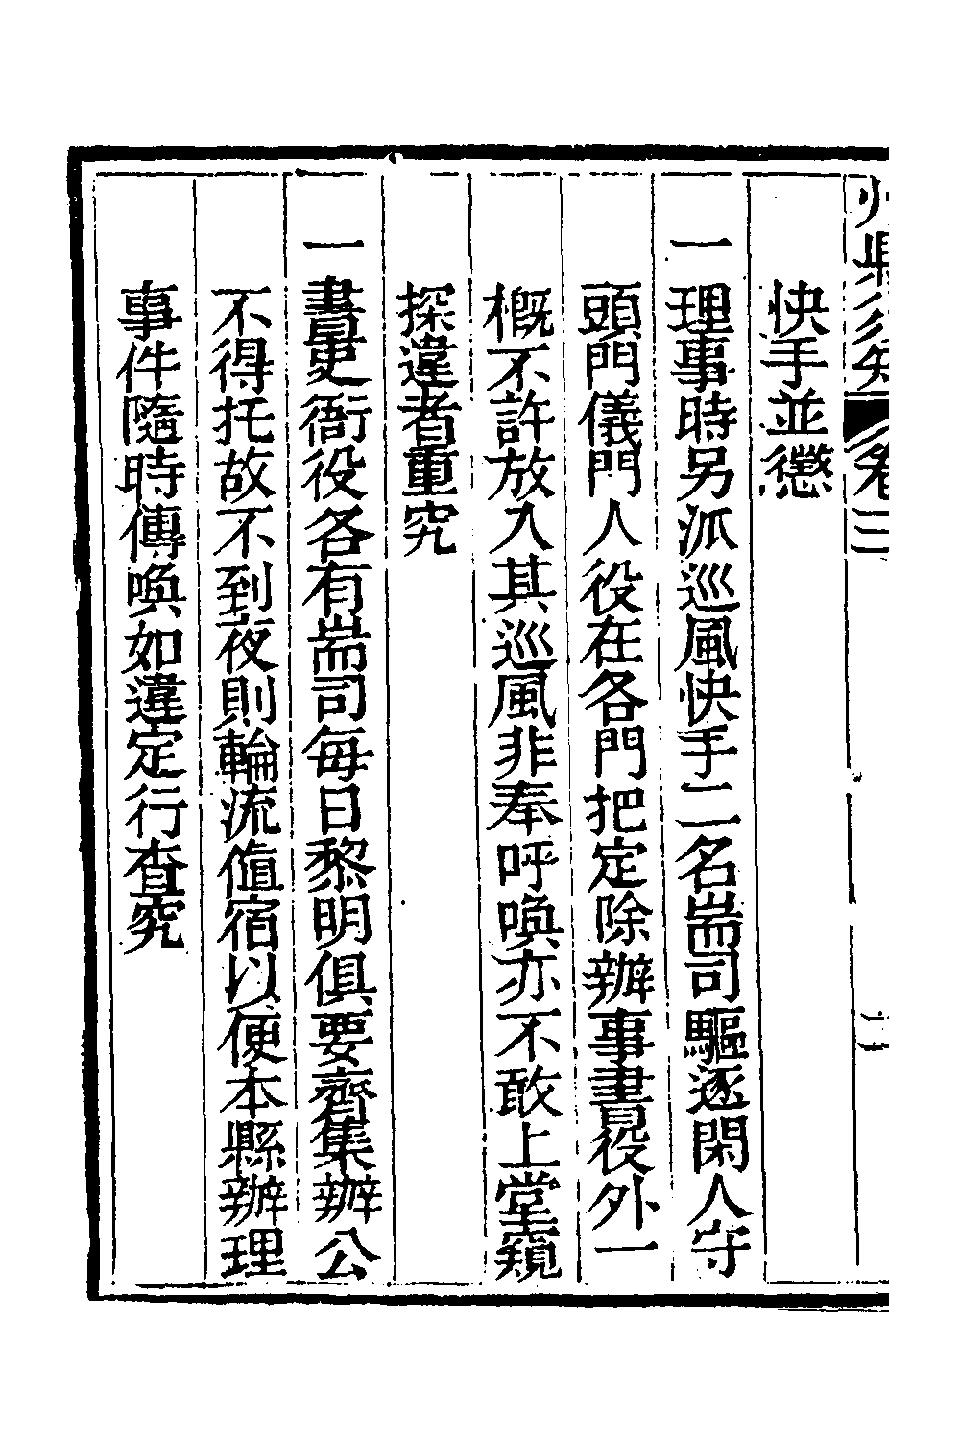 州縣須知 卷三 二
快手並懲
一理事時另派巡風快手二名耑司驅逐閑人守
頭門儀門人役在各門把定除辦事書役外一
概不許放入其巡風非奉呼喚亦不敢上堂窺
探違者重究
一書吏衙役各有耑司每日黎明俱要齊集辦公
不得托故不到夜則輪流值宿以便本縣辦理
事件隨時傳喚如違定行查究